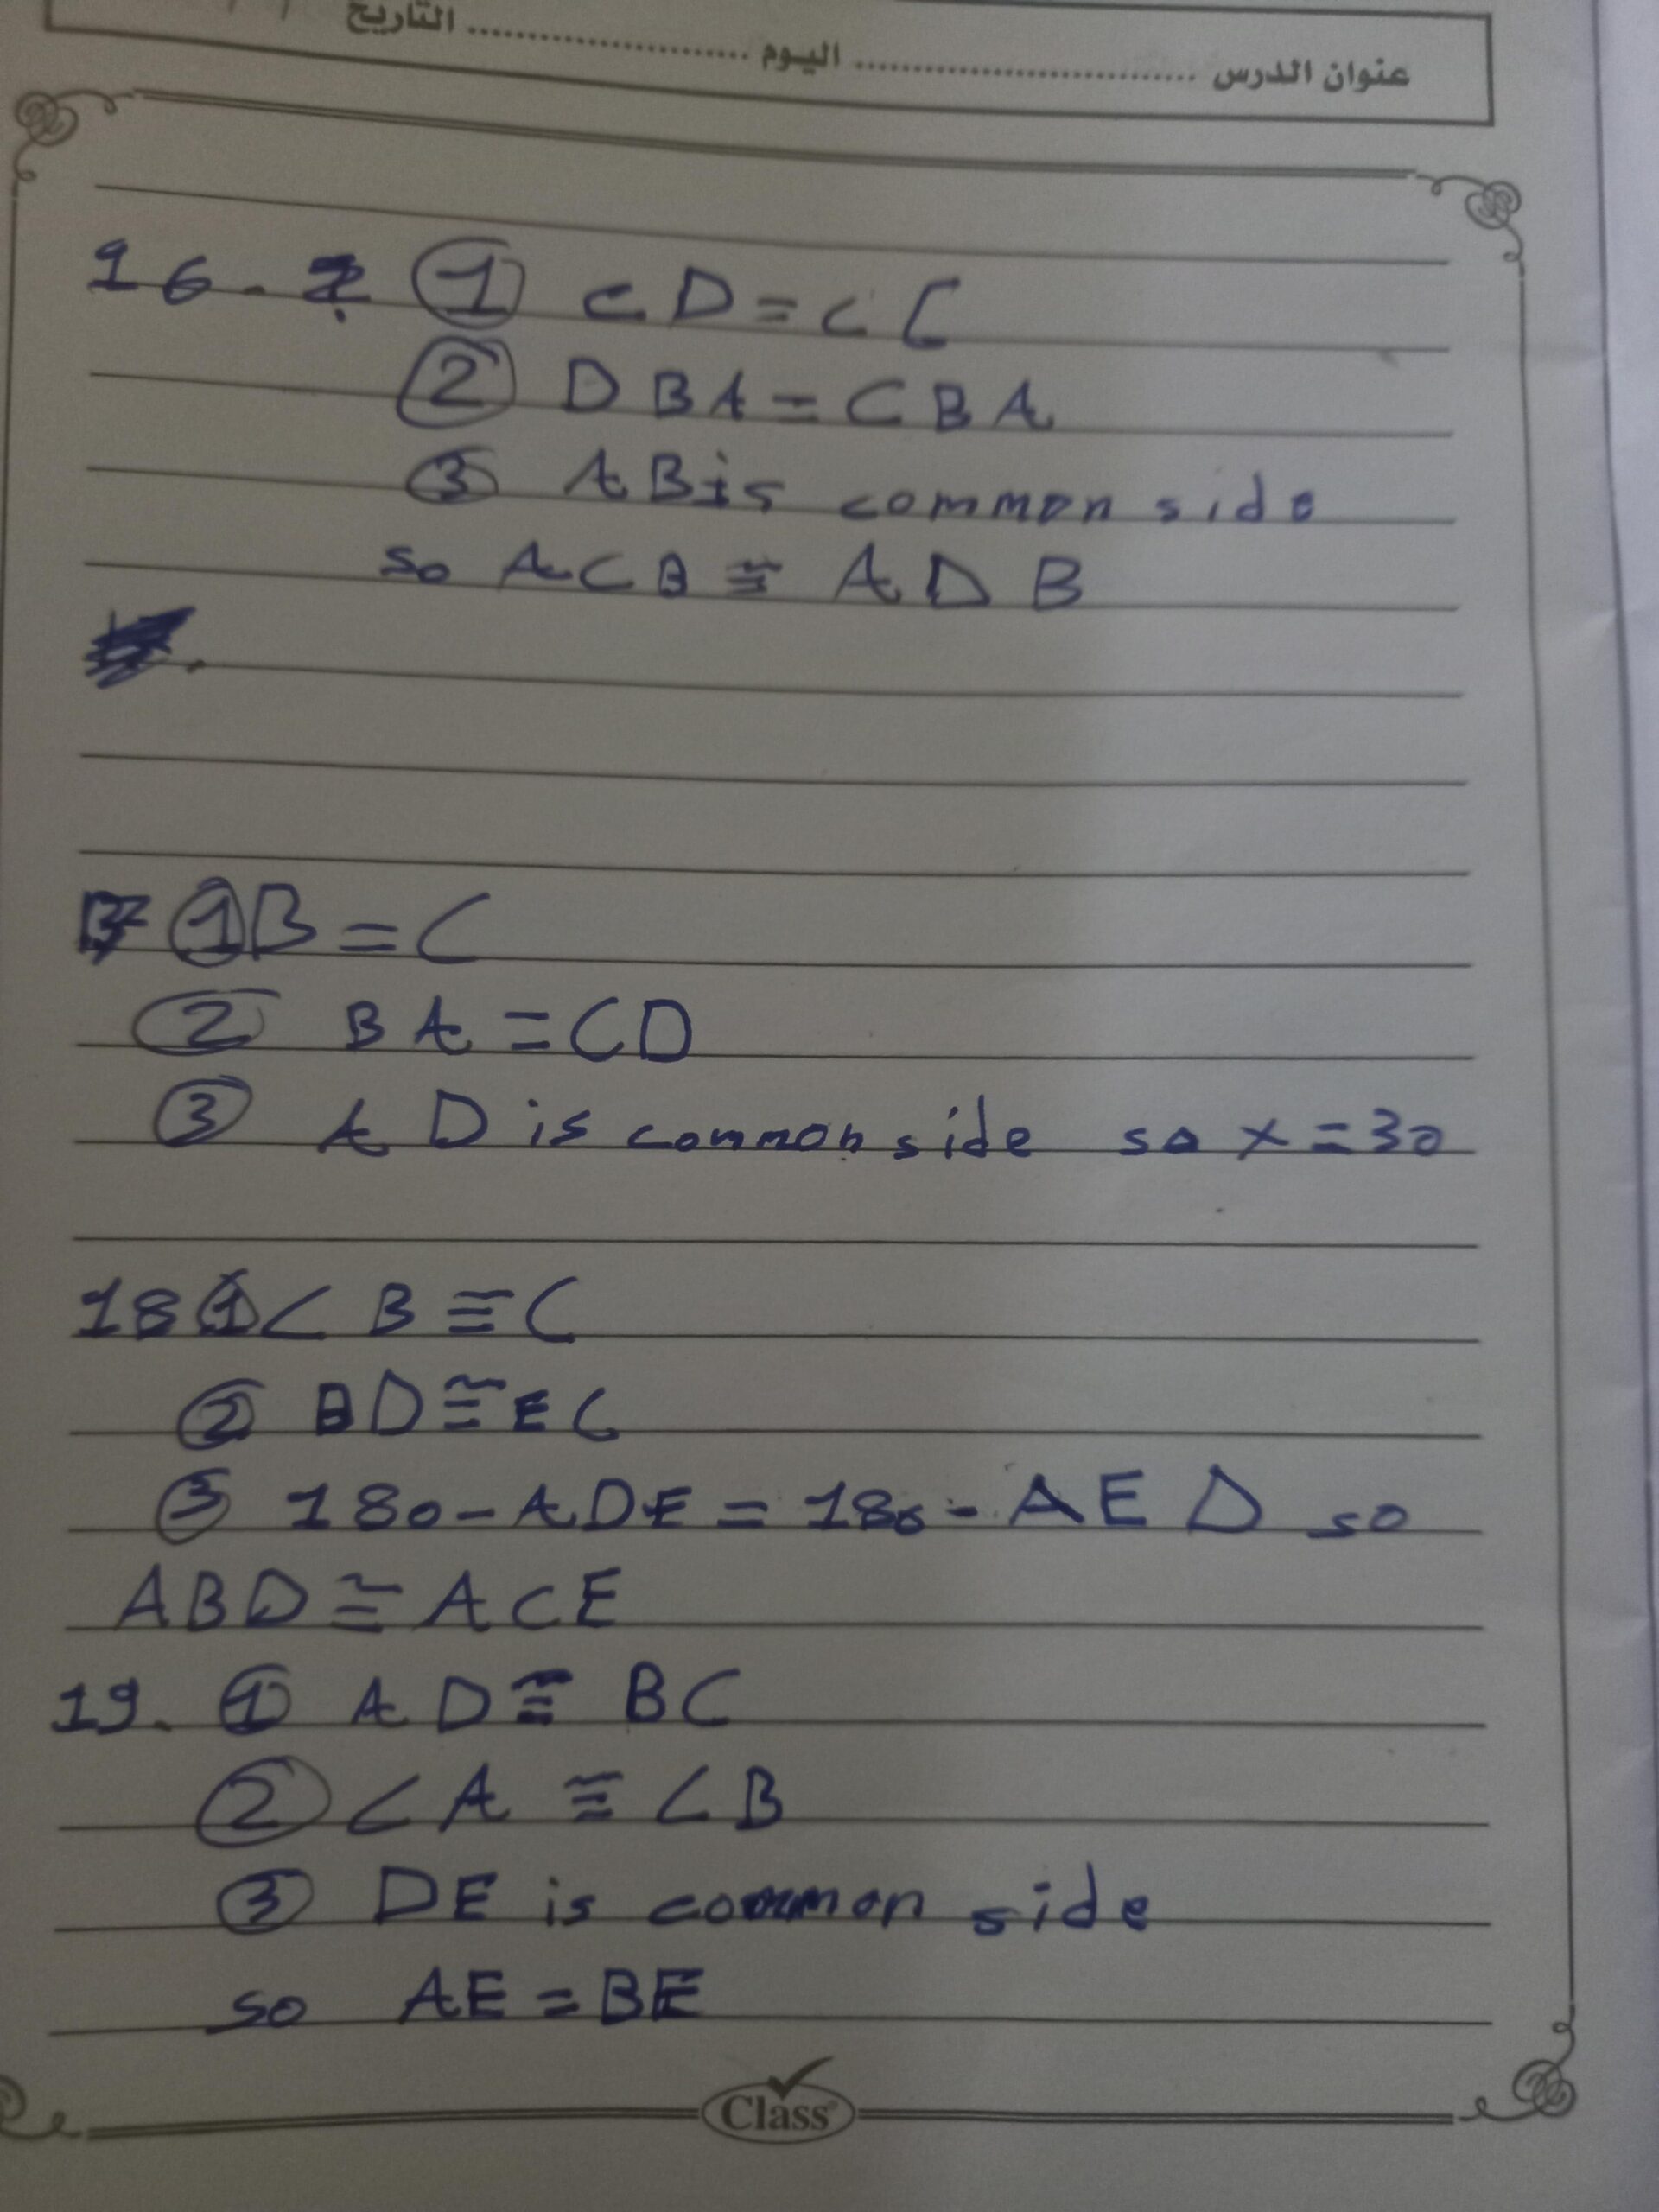 عنوان الدرس ........................ اليوم ........................ التاريخ
16. ① <D = <C
② DBA = CBA
③ AB is common side
so ACB ≅ ADB
17 ① B = C
② BA = CD
③ AD is common side so x = 30
18 ① < B ≅ C
② BD ≅ EC
③ 180 - ADE = 180 - AED so
ABD ≅ ACE
19. ① AD ≅ BC
② <A ≅ <B
③ DE is common side
so AE = BE
Class